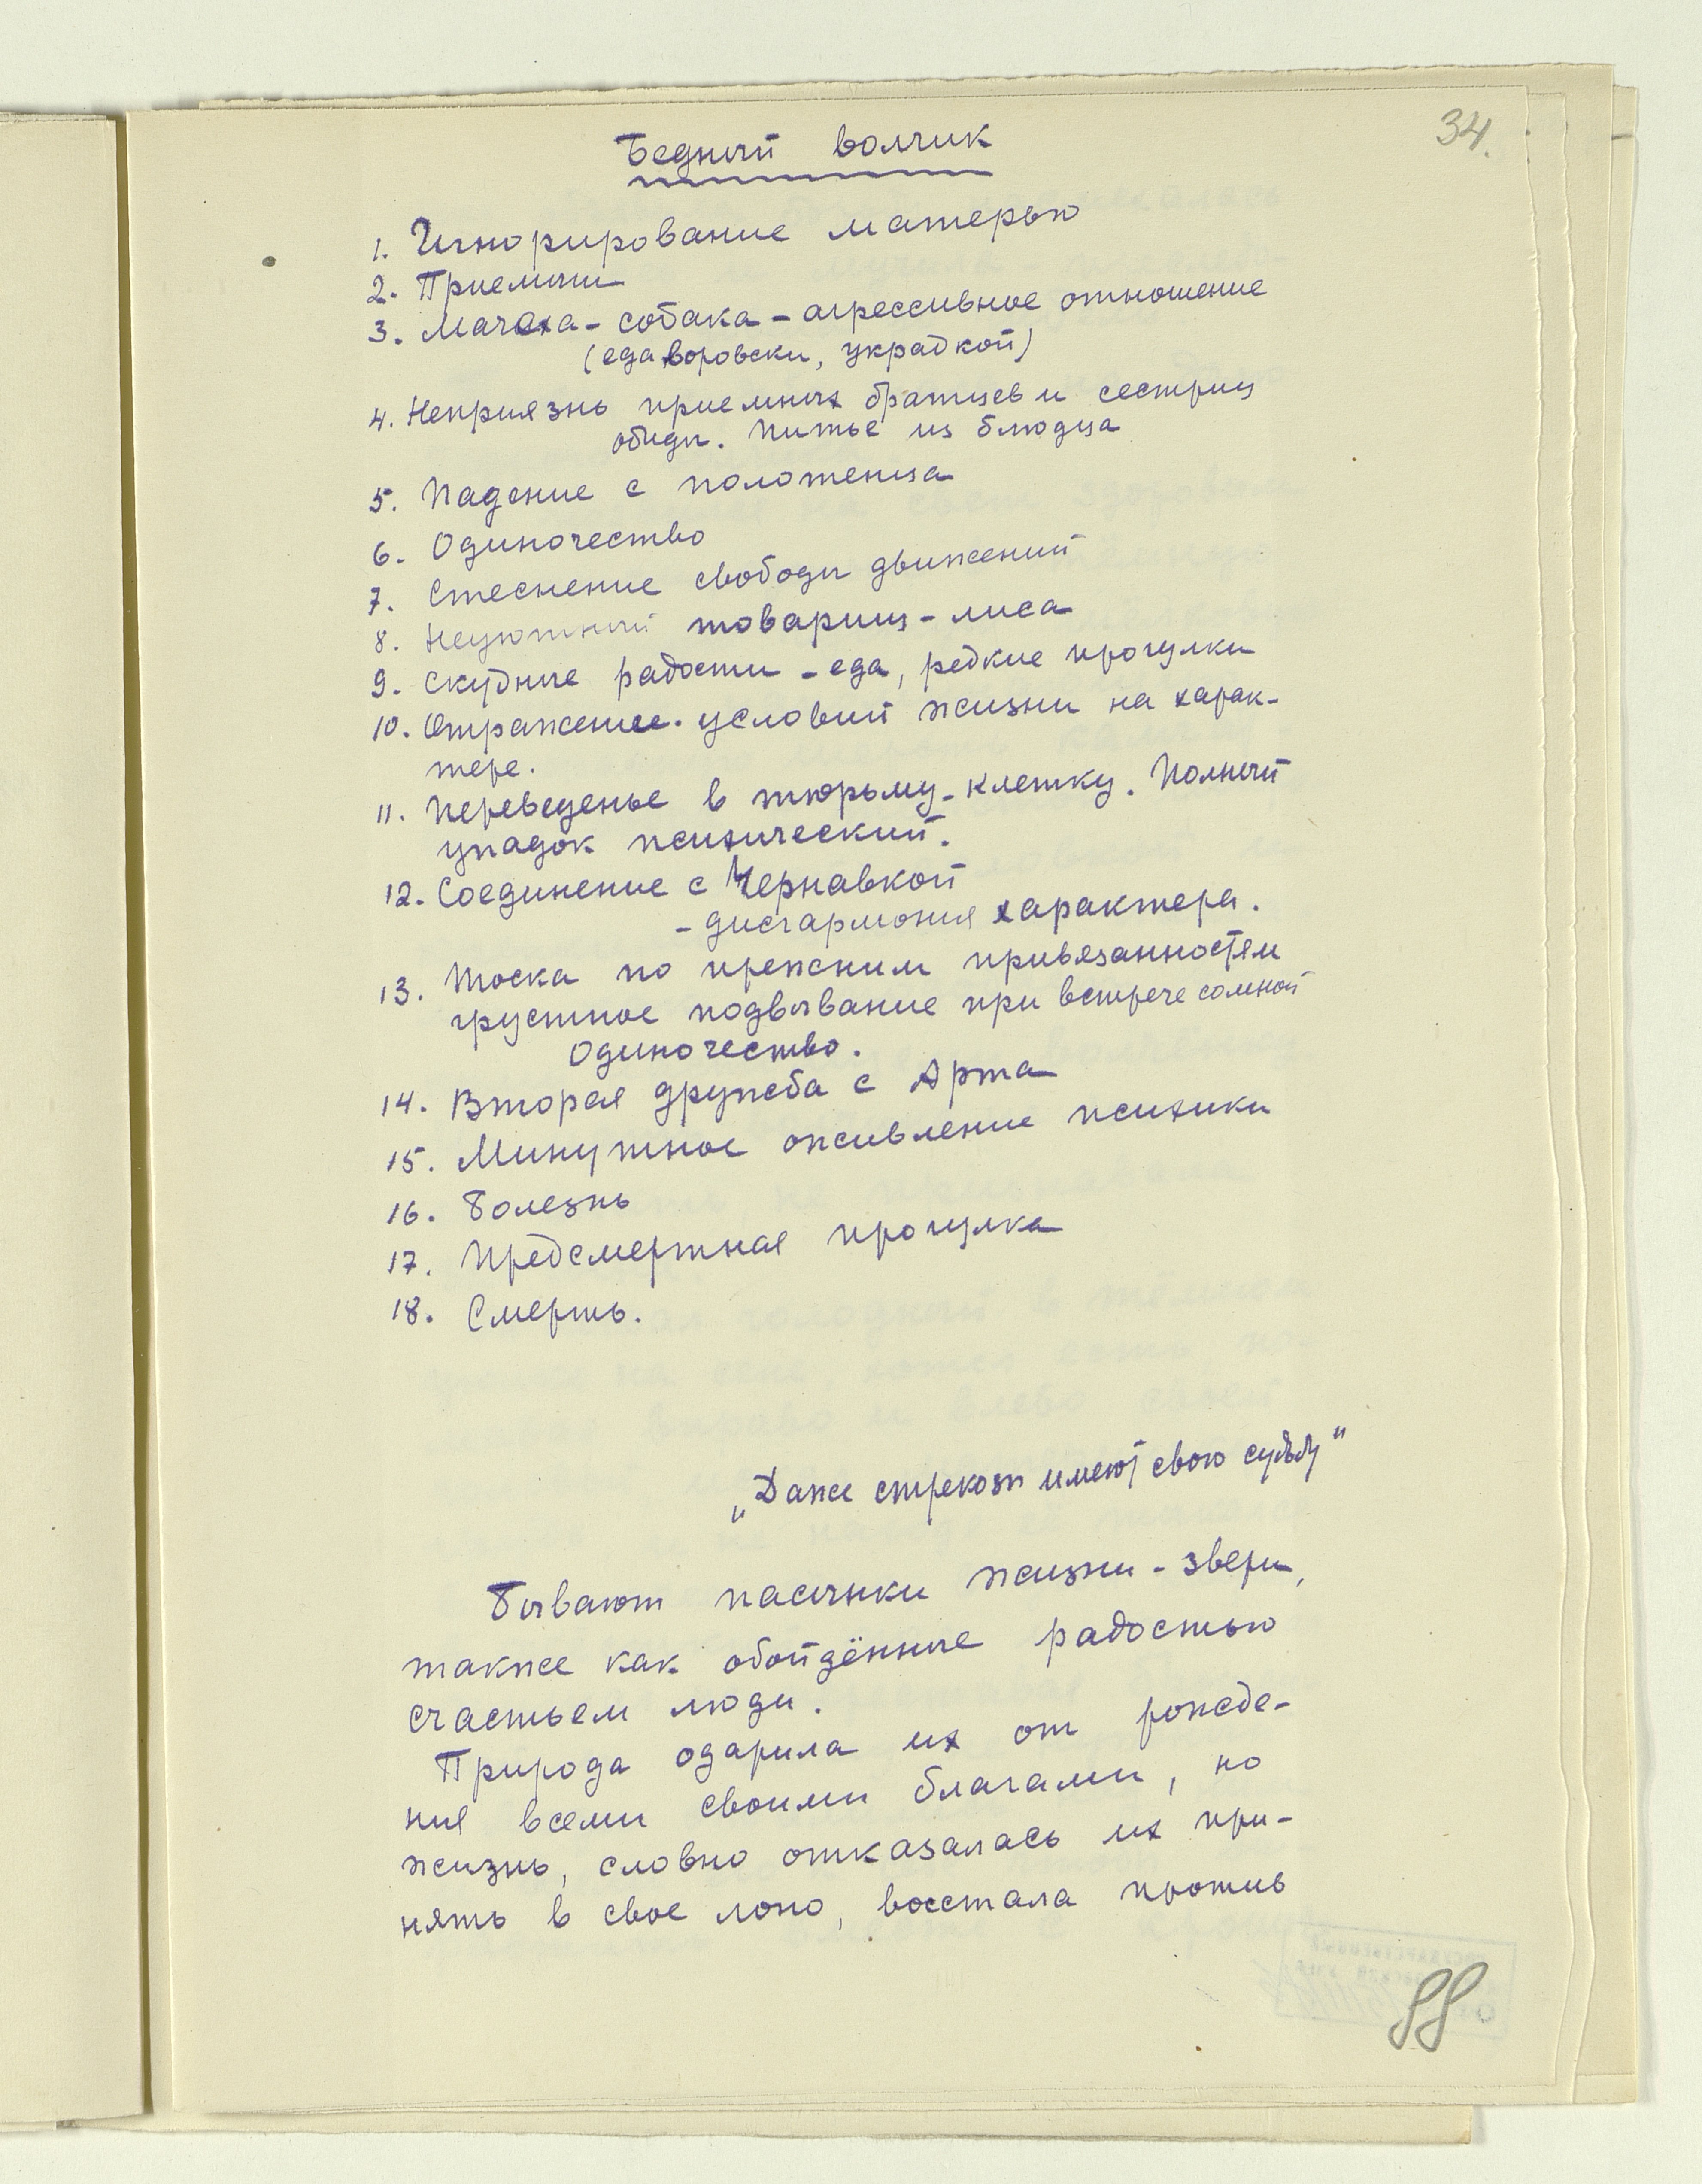 34.
Бедный волчик
1. Игнорирование матерью
2. Приемыш
3. Мачеха - собака - агрессивное отношение
(еда воровски, украдкой)
4. Неприязнь приемных братцев и сестриц
обиды. Питье из блюдца
5. Падение с полотенца
6. Одиночество
7. Стеснение свободы движений
8. Неуютный товарищ - лиса
9. Скудные радости - еда, редкие прогулки
10. Отражение условий жизни на харак-
тере.
11. Переведенье в тюрьму - клетку. Полный
упадок психический.
12. Соединение с Чернавкой
- дисгармония характера.
13. Тоска по прежним привязанностям
грустное подвывание при встрече со мной
Одиночество.
14. Вторая дружба с Арта
15. Минутное оживление психики
16. Болезнь
17. Предсмертная прогулка
18. Смерть.
„Даже стрекозы имеют свою судьбу"
Бывают пасынки жизни - звери,
также как обойдённые радостью
счастьем люди.
Природа одарила их от рожде-
ния всеми своими благами, но
жизнь, словно отказалась их при-
нять в свое лоно, восстала против